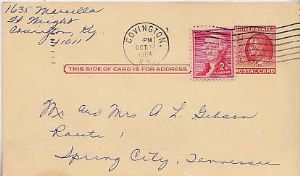 1635 Marcella
Ft Wright
Covington, Ky
41011
COVINGTON,
PM
OCT
1964
KY.
2¢
UNITED STATES
POSTAL CARD
THIS SIDE OF CARD IS FOR ADDRESS
Mr. and Mrs A L Gibson
Route 1
Spring City, Tennessee